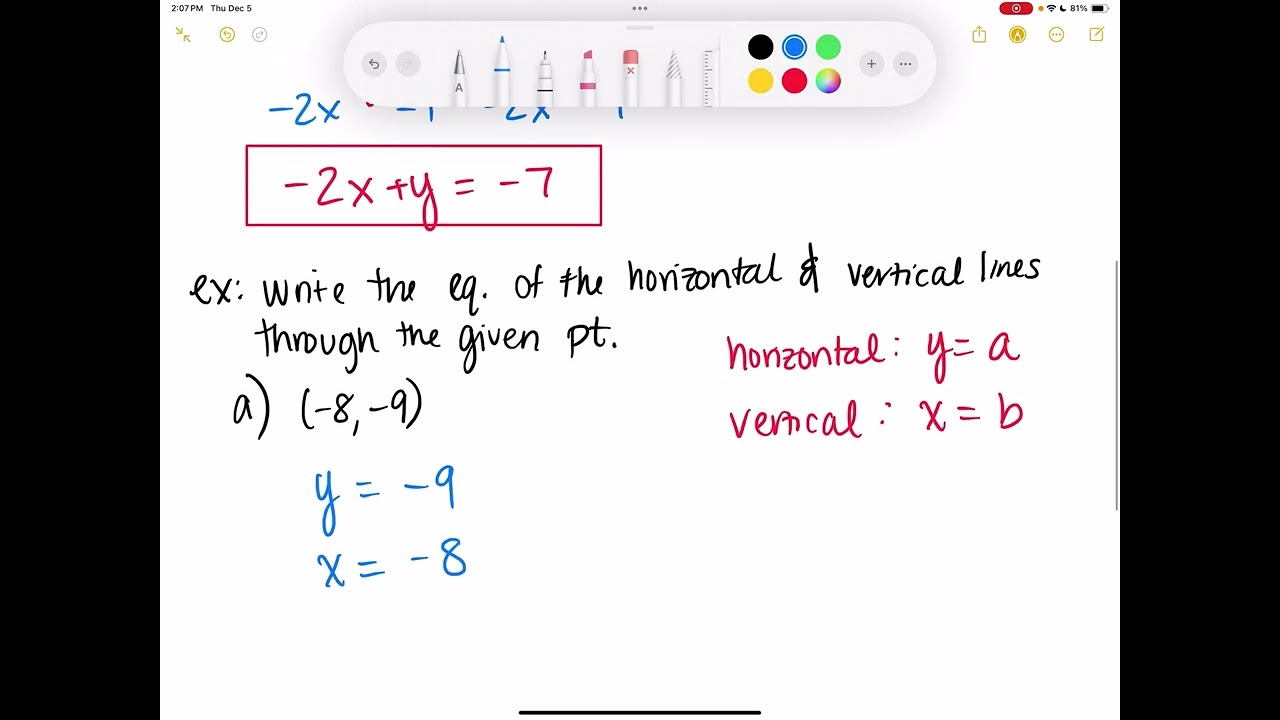 2:07 PM Thu Dec 5
81%
A
-2x
-2x
-2x + y = -7
ex: Write the eq. of the horizontal & vertical lines
through the given pt.
horizontal: y = a
a) (-8, -9)
vertical: x = b
y = -9
x = -8